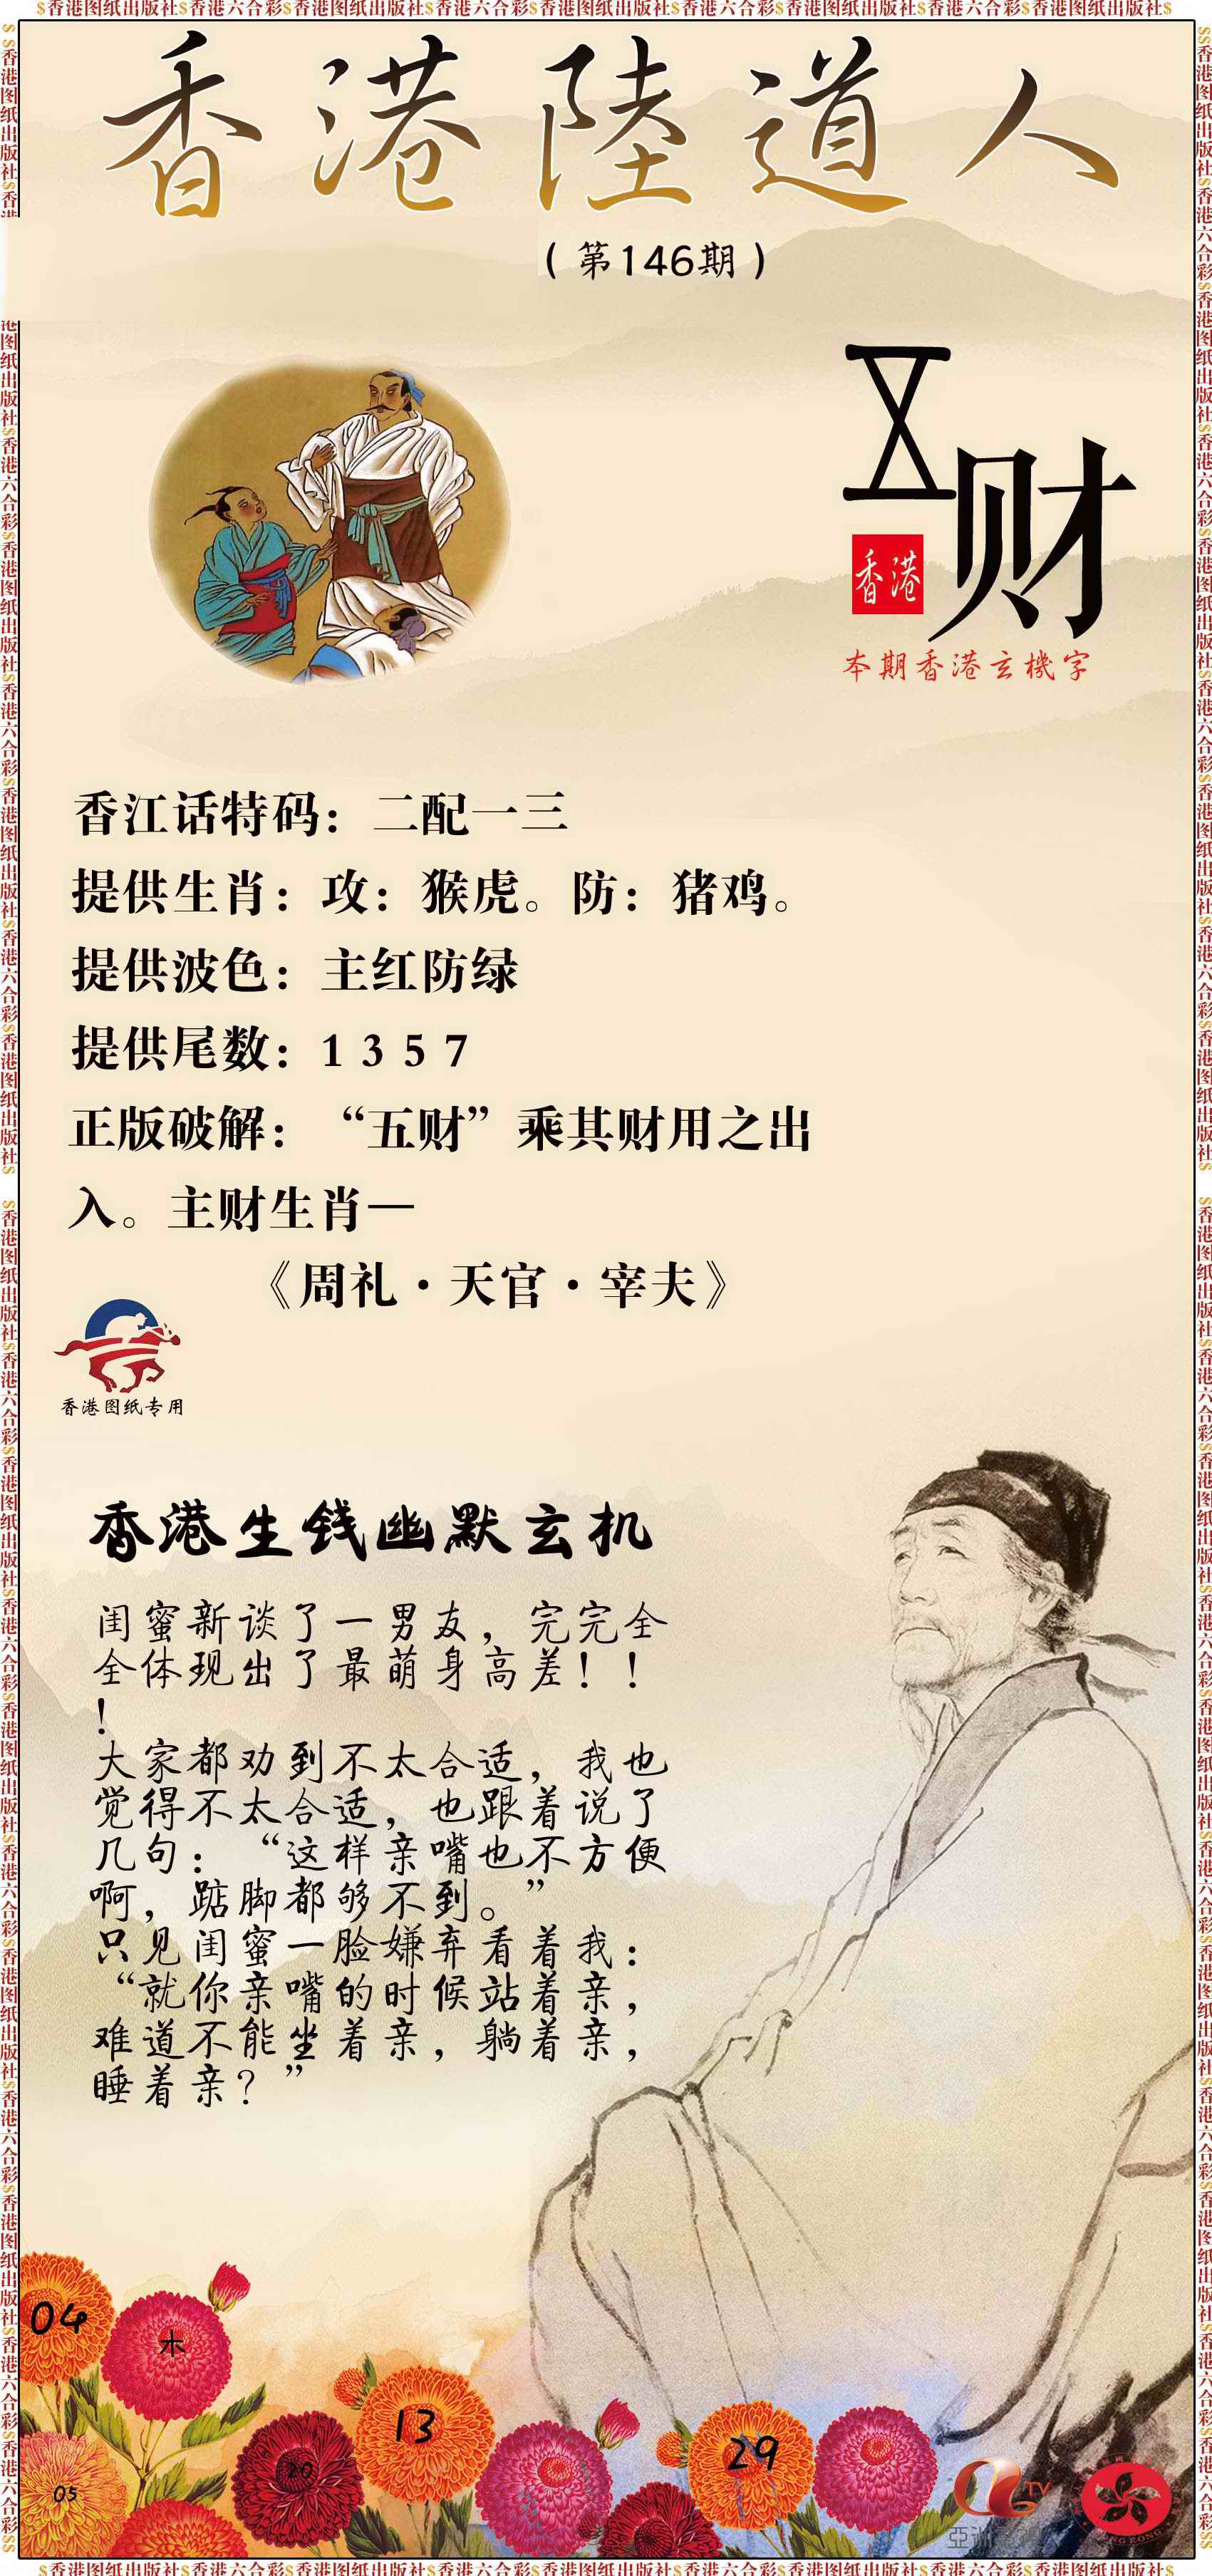 $香港图纸出版社$香港六合彩$香港图纸出版社$香港六合彩$香港图纸出版社$香港六合彩$香港图纸出版社$香港六合彩$香港图纸出版社$
香港陸道人
(第146期)
五财
香港
本期香港玄機字
香江话特码：二配一三
提供生肖：攻：猴虎。防：猪鸡。
提供波色：主红防绿
提供尾数：1 3 5 7
正版破解：“五财”乘其财用之出
入。主财生肖—
《周礼·天官·宰夫》
香港图纸专用
香港生钱幽默玄机
闺蜜新谈了一男友，完完全
全体现出了最萌身高差！！
！
大家都劝到不太合适，我也
觉得不太合适，也跟着说了
几句：“这样亲嘴也不方便
啊，踮脚都够不到。”
只见闺蜜一脸嫌弃看着我：
“就你亲嘴的时候站着亲，
难道不能坐着亲，躺着亲，
睡着亲？”
04
木
13
29
20
05
TV
$香港图纸出版社$香港六合彩$香港图纸出版社$香港六合彩$香港图纸出版社$香港六合彩$香港图纸出版社$香港六合彩$香港图纸出版社$